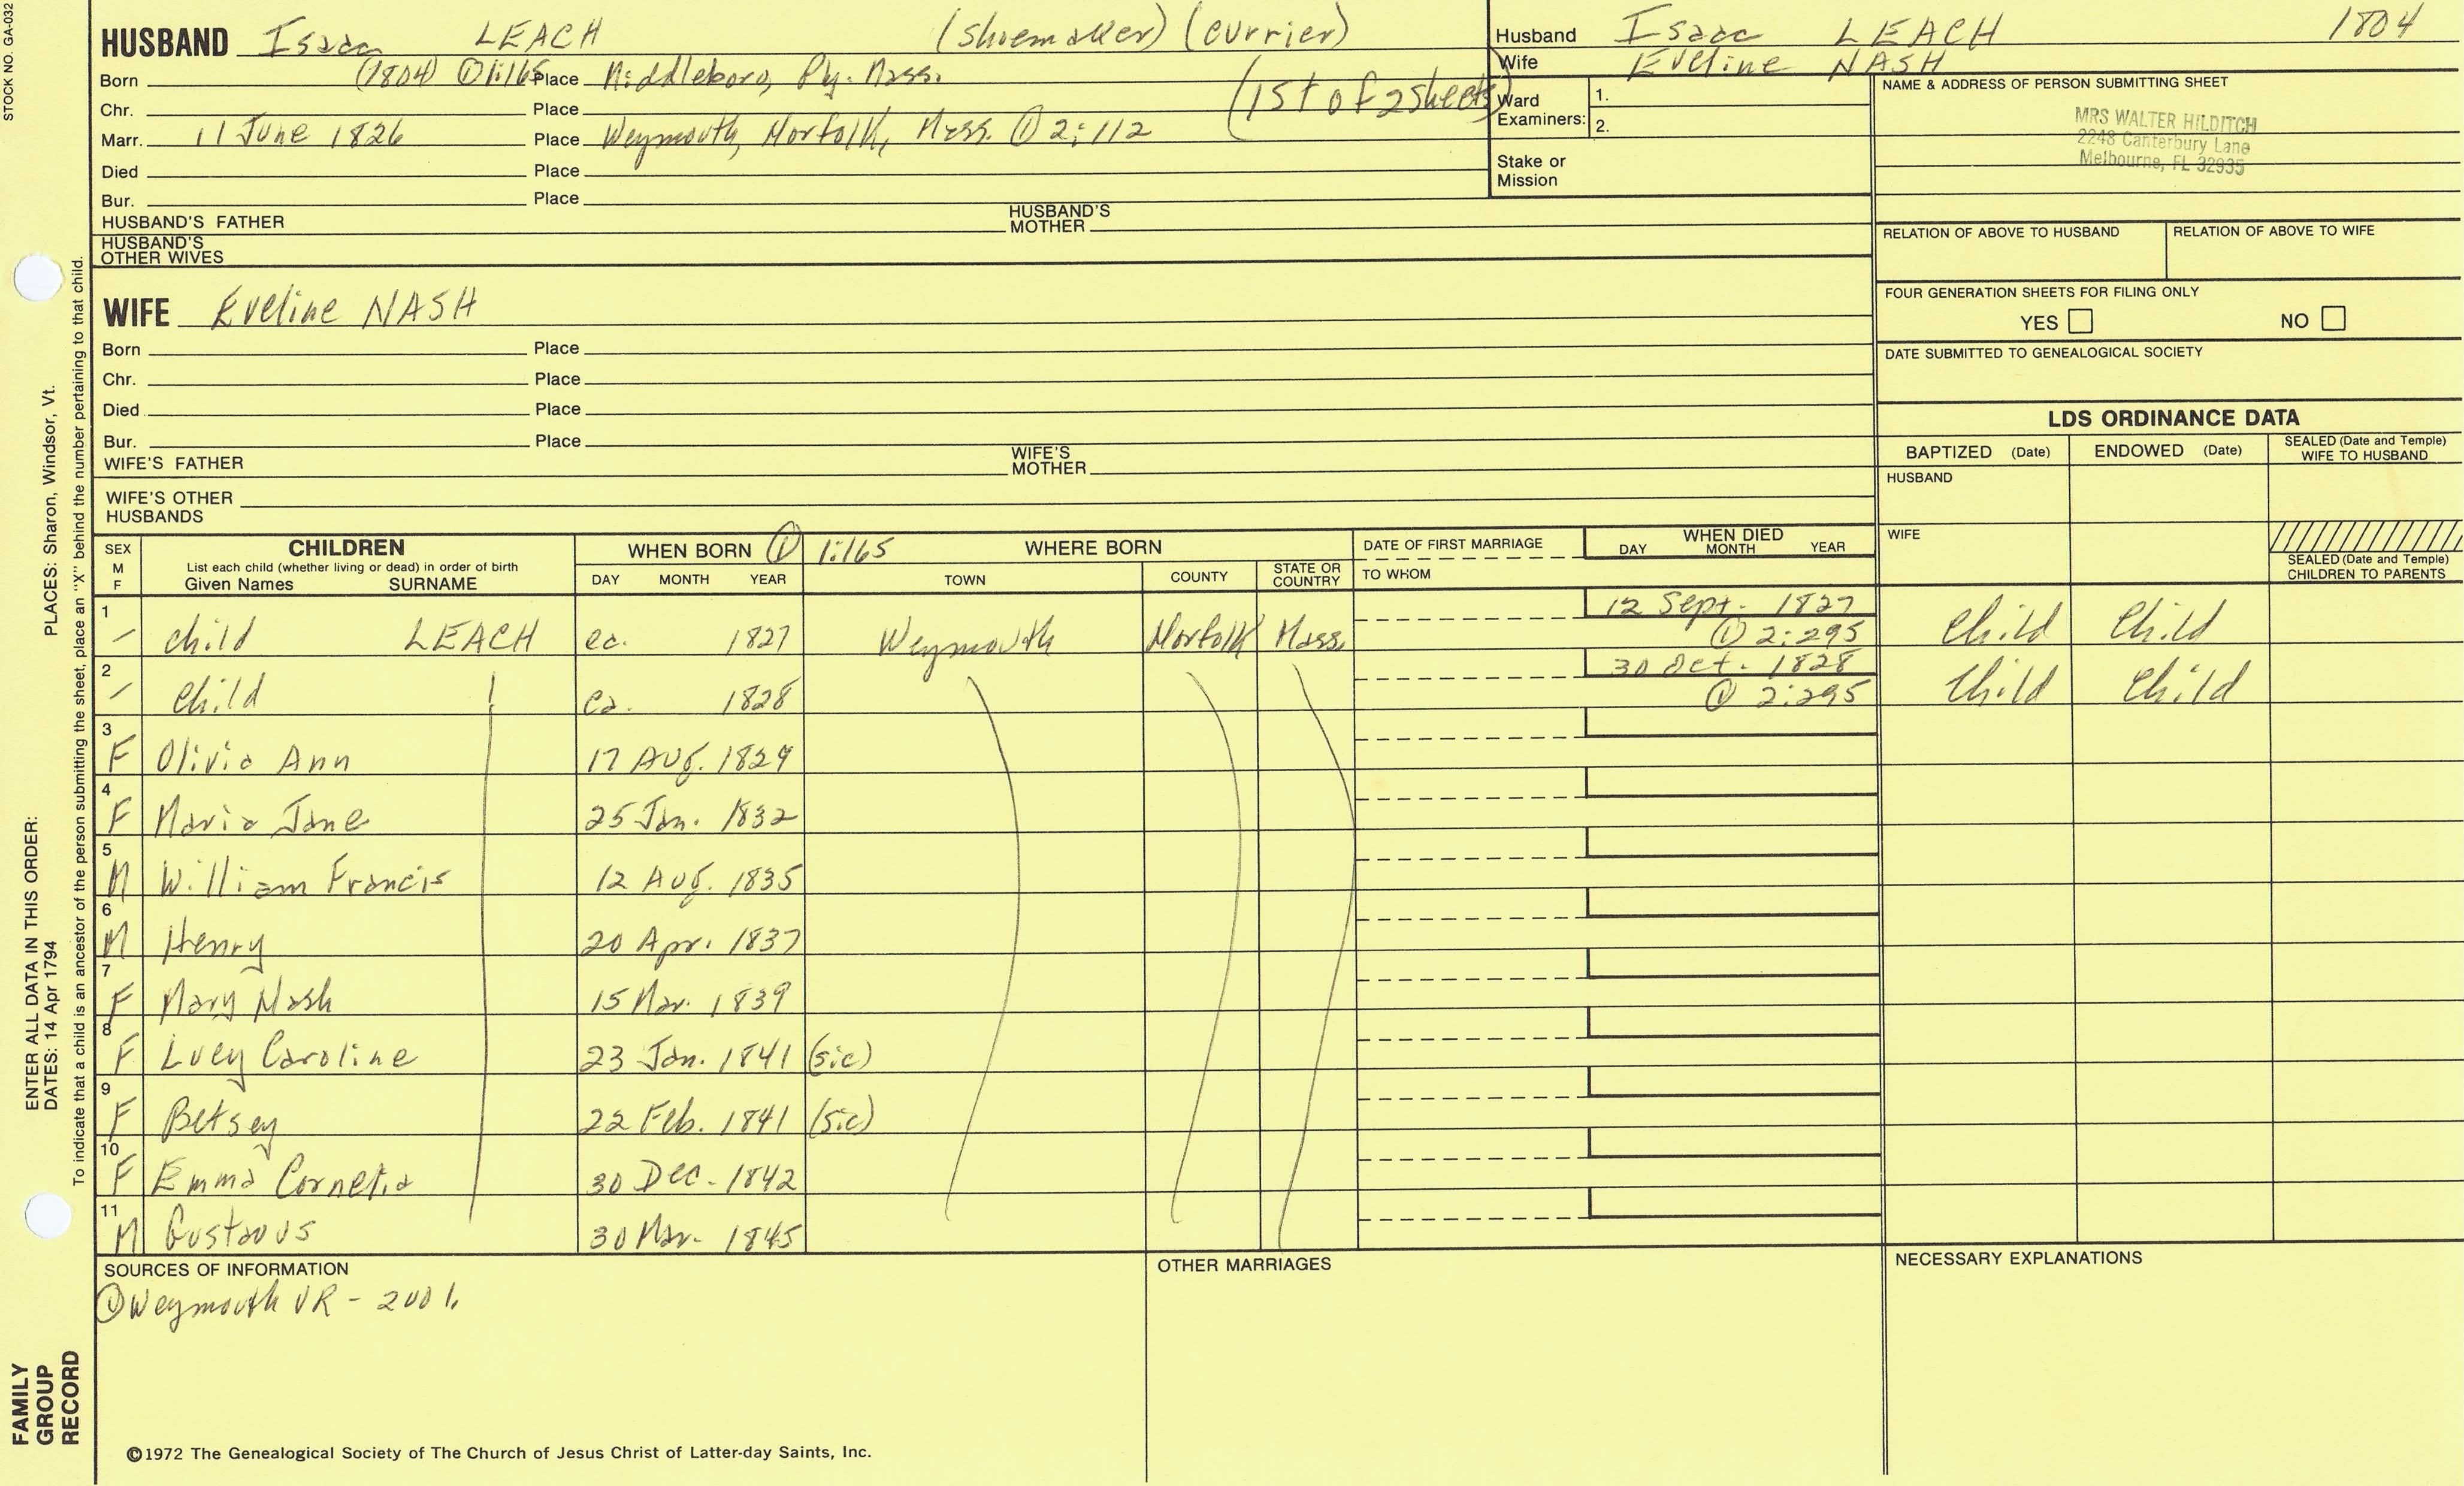 STOCK NO. GA-032
HUSBAND Isaac LEACH (shoemaker) (currier)
Born (1804) ① 1:165 Place Middleboro, Ply. Mass.
(1st of 2 sheets)
Chr. Place
Marr. 11 June 1826 Place Weymouth, Norfolk, Mass. ① 2:112
Died Place
Bur. Place
HUSBAND'S FATHER HUSBAND'S MOTHER
HUSBAND'S OTHER WIVES
Husband Isaac LEACH 1804
Wife Eveline NASH
Ward Examiners: 1.
2.
Stake or Mission
NAME & ADDRESS OF PERSON SUBMITTING SHEET
MRS WALTER HILDITCH
2248 Canterbury Lane
Melbourne, FL 32935
RELATION OF ABOVE TO HUSBAND RELATION OF ABOVE TO WIFE
FOUR GENERATION SHEETS FOR FILING ONLY
YES NO
DATE SUBMITTED TO GENEALOGICAL SOCIETY
WIFE Eveline NASH
Born Place
Chr. Place
Died Place
Bur. Place
WIFE'S FATHER WIFE'S MOTHER
WIFE'S OTHER HUSBANDS
LDS ORDINANCE DATA
BAPTIZED (Date) ENDOWED (Date) SEALED (Date and Temple) WIFE TO HUSBAND
HUSBAND
WIFE
SEALED (Date and Temple) CHILDREN TO PARENTS
SEX M F
CHILDREN
List each child (whether living or dead) in order of birth
Given Names SURNAME
WHEN BORN ① 1:165 WHERE BORN
DAY MONTH YEAR TOWN COUNTY STATE OR COUNTRY
DATE OF FIRST MARRIAGE
TO WHOM
WHEN DIED
DAY MONTH YEAR
1 – child LEACH ca. 1827 Weymouth Norfolk Mass. 12 Sept. 1827 ① 2:295 Child Child
2 – child ca. 1828 30 Oct. 1828 ① 2:295 Child Child
3 F Olivia Ann 17 Aug. 1829
4 F Maria Jane 25 Jan. 1832
5 M William Francis 12 Aug. 1835
6 M Henry 20 Apr. 1837
7 F Mary Nash 15 Mar. 1839
8 F Lucy Caroline 23 Jan. 1841 (sic)
9 F Betsey 22 Feb. 1841 (sic)
10 F Emma Cornelia 30 Dec. 1842
11 M Gustavus 30 Mar. 1845
SOURCES OF INFORMATION
① Weymouth VR - 2 vol.
OTHER MARRIAGES
NECESSARY EXPLANATIONS
©1972 The Genealogical Society of The Church of Jesus Christ of Latter-day Saints, Inc.
FAMILY GROUP RECORD
ENTER ALL DATA IN THIS ORDER:
DATES: 14 Apr 1794 PLACES: Sharon, Windsor, Vt.
To indicate that a child is an ancestor of the person submitting the sheet, place an "X" behind the number pertaining to that child.